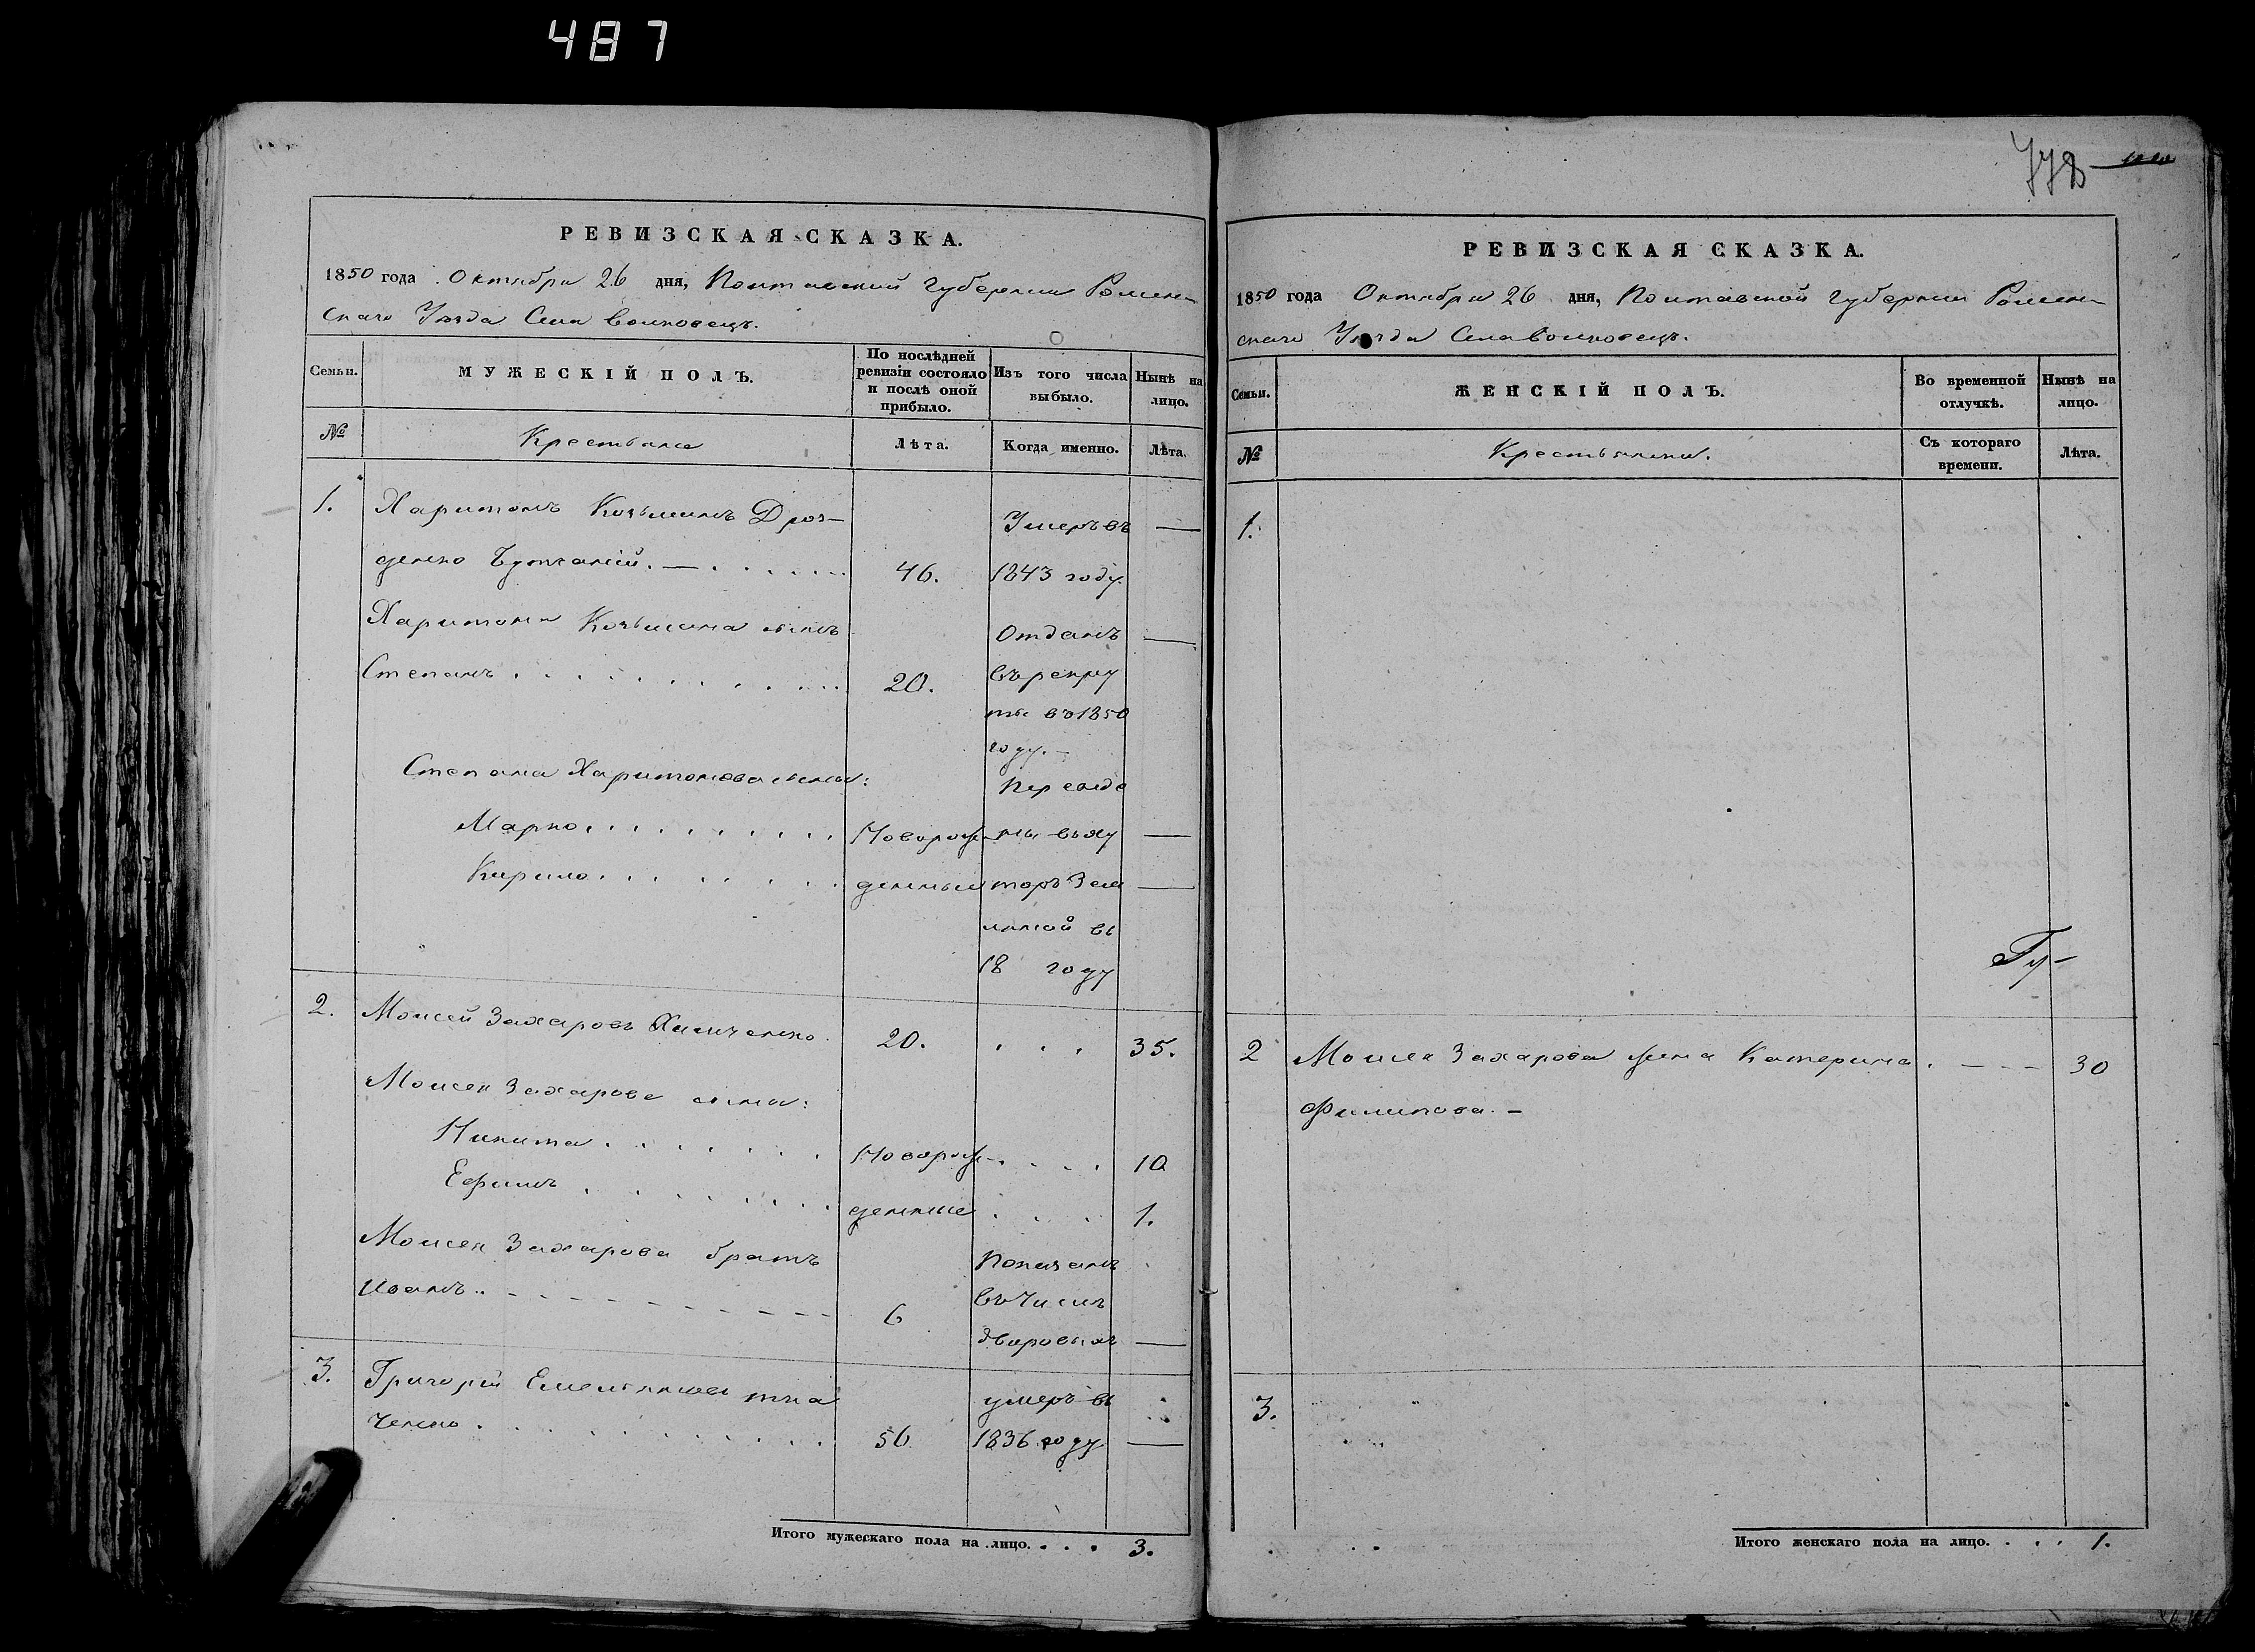 487
778
РЕВИЗСКАЯ СКАЗКА.
1850 года Октября 26 дня, Полтавской губернии Ромен-
скаго Уѣзда Села Волковецъ.
Семьи.
МУЖЕСКІЙ ПОЛЪ.
По послѣдней ревизіи состояло и послѣ оной прибыло.
Изъ того числа выбыло.
Нынѣ на лицо.
№
Крестьяне
Лѣта.
Когда именно.
Лѣта.
1. Харитонъ Козьминъ Дроз- Умеръ въ —
денко 46. 1843 году.
Харитона Козьмина сынъ Отданъ —
Степанъ 20. въ рекру
ты въ 1850
году.
Степана Харитонова сыны: Переведе
Марко Новорож- ны въ ху —
Кирило денныи торъ Зеле —
ной въ
18 году
2. Моисей Захаровъ 20. 35.
Моисея Захарова сыны:
Никита Новорож- 10
Ефимъ денные 1.
Моисея Захарова братъ Показанъ
Иванъ 6 въ числѣ
дворовыхъ —
3. Григорій Емельяновъ Тка умеръ въ
ченко 56 1836 году —
Итого мужескаго пола на лицо. 3.
РЕВИЗСКАЯ СКАЗКА.
1850 года Октября 26 дня, Полтавской губернии Ромен-
скаго Уѣзда Села Волковецъ.
Семьи.
ЖЕНСКІЙ ПОЛЪ.
Во временной отлучкѣ.
Нынѣ на лицо.
№
Крестьянки.
Съ котораго времени.
Лѣта.
1.
2 Моисея Захарова жена Катерина 30
Филипова. —
3.
Итого женскаго пола на лицо. 1.